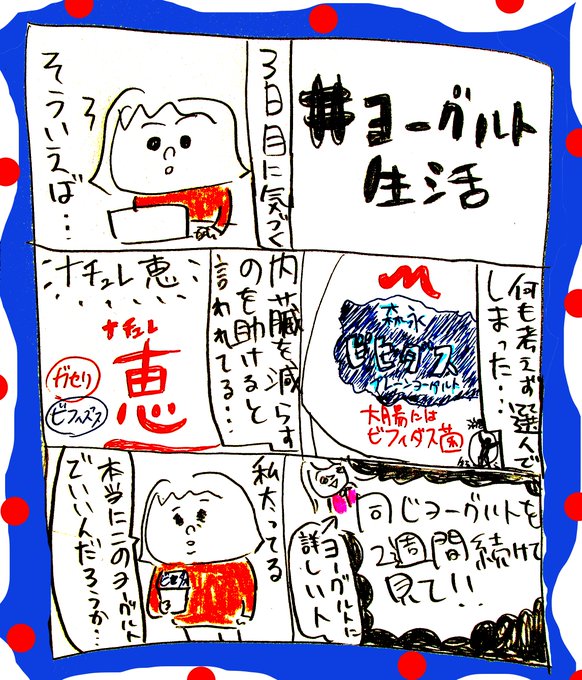 #ヨーグルト
生活
3日目に気づく
そういえば…
何も考えず選んで
しまった…
森永
ビヒダス
プレーンヨーグルト
大腸には
ビフィダス菌
内臓を減らす
のを助けると
言われてる…
ナチュレ 恵
ナチュレ
恵
ガセリ
ビフィズス
同じヨーグルトを
2週間続けて
見て!!
ヨーグルトに
詳しい人
私太ってる
本当にこのヨーグルト
でいいんだろうか…